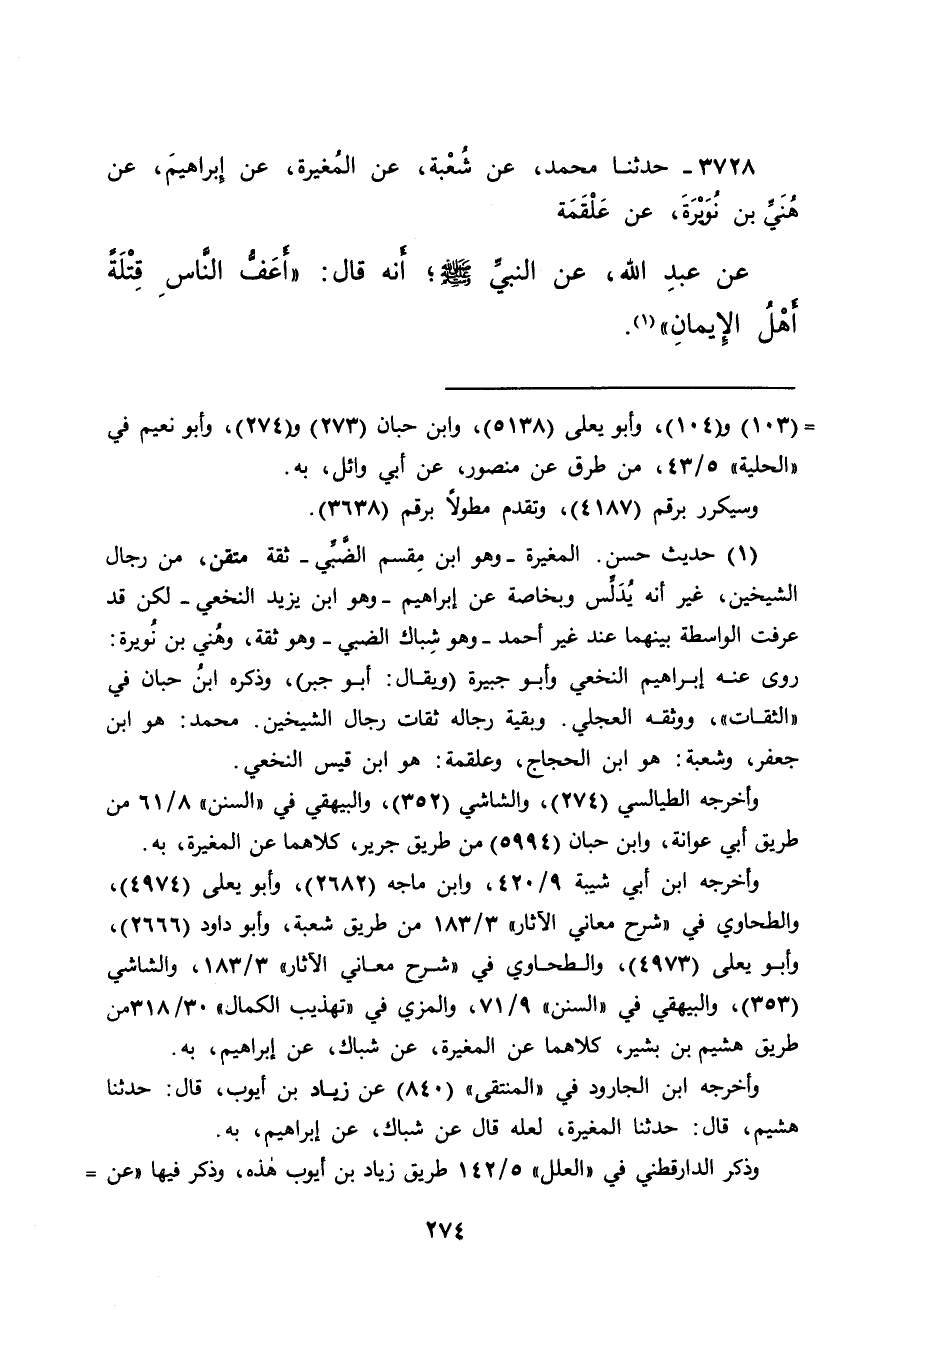 ٣٧٢٨ ـ حدثنا محمد، عن شُعْبة، عن المُغيرة، عن إبراهيمَ، عن
هُنَيِّ بن نُوَيْرَةَ، عن عَلْقَمَة
عن عبدِ الله، عن النبيِّ ﷺ؛ أَنه قال: «أَعَفُّ النَّاسِ قِتْلَةً
أَهْلُ الإِيمانِ»(١).
= (١٠٣) و(١٠٤)، وأبو يعلى (٥١٣٨)، وابن حبان (٢٧٣) و(٢٧٤)، وأبو نعيم في
«الحلية» ٤٣/٥، من طرق عن منصور، عن أبي وائل، به.
وسيكرر برقم (٤١٨٧)، وتقدم مطولاً برقم (٣٦٣٨).
(١) حديث حسن. المغيرة ـ وهو ابن مِقسم الضَّبِّي ـ ثقة متقن، من رجال
الشيخين، غير أنه يُدَلِّس وبخاصة عن إبراهيم ـ وهو ابن يزيد النخعي ـ لكن قد
عرفت الواسطة بينهما عند غير أحمد ـ وهو شِباك الضبي ـ وهو ثقة، وهُني بن نُويرة:
روى عنه إبراهيم النخعي وأبو جبيرة (ويقال: أبو جبر)، وذكره ابنُ حبان في
«الثقات»، ووثقه العجلي. وبقية رجاله ثقات رجال الشيخين. محمد: هو ابن
جعفر، وشعبة: هو ابن الحجاج، وعلقمة: هو ابن قيس النخعي.
وأخرجه الطيالسي (٢٧٤)، والشاشي (٣٥٢)، والبيهقي في «السنن» ٦١/٨ من
طريق أبي عوانة، وابن حبان (٥٩٩٤) من طريق جرير، كلاهما عن المغيرة، به.
وأخرجه ابن أبي شيبة ٤٢٠/٩، وابن ماجه (٢٦٨٢)، وأبو يعلى (٤٩٧٤)،
والطحاوي في «شرح معاني الآثار» ١٨٣/٣ من طريق شعبة، وأبو داود (٢٦٦٦)،
وأبو يعلى (٤٩٧٣)، والطحاوي في «شرح معاني الآثار» ١٨٣/٣، والشاشي
(٣٥٣)، والبيهقي في «السنن» ٧١/٩، والمزي في «تهذيب الكمال» ٣١٨/٣٠من
طريق هشيم بن بشير، كلاهما عن المغيرة، عن شباك، عن إبراهيم، به.
وأخرجه ابن الجارود في «المنتقى» (٨٤٠) عن زياد بن أيوب، قال: حدثنا
هشيم، قال: حدثنا المغيرة، لعله قال عن شباك، عن إبراهيم، به.
وذكر الدارقطني في «العلل» ١٤٢/٥ طريق زياد بن أيوب هٰذه، وذكر فيها «عن =
٢٧٤